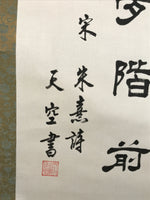 階前
宋 朱熹詩
天空書